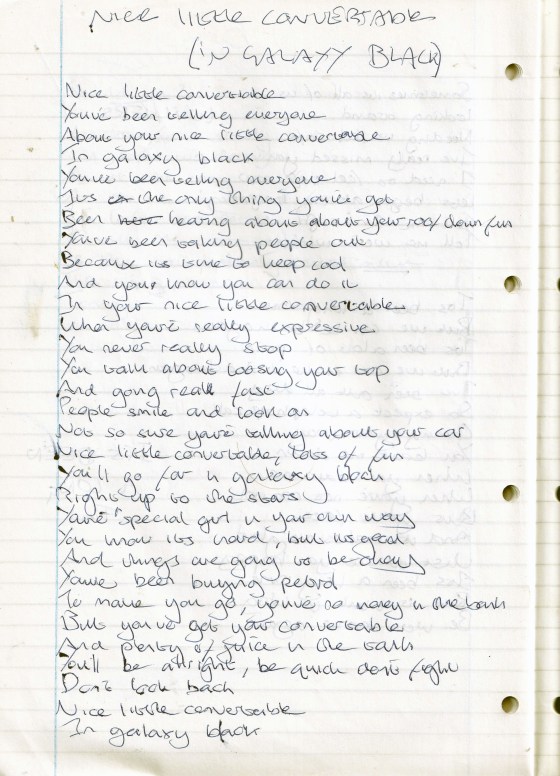 NICE LITTLE CONVERTABLE
(IN GALAXY BLACK)
Nice little convertable
You've been telling everyone
About your nice little convertable
In galaxy black
You've been telling everyone
It's the only thing you've got
Been hearing about about your roof down fun
You've been taking people out
Because its time to keep cool
And you know you can do it
In your nice little convertable
When you're really expressive
You never really stop
You talk about loosing your top
And going real fast
People smile and look on
Not so sure you're talking about your car
Nice little convertable, lots of fun
You'll go far in galaxy black
Right up to the stars
You're special girl in your own way
You know its hard, but its good
And things are going to be okay
You've been buying petrol
To make you go, you've no money in the bank
But you've got your convertable
And plenty of juice in the tank
You'll be allright, be quick don't fight
Don't look back
Nice little convertable
In galaxy black